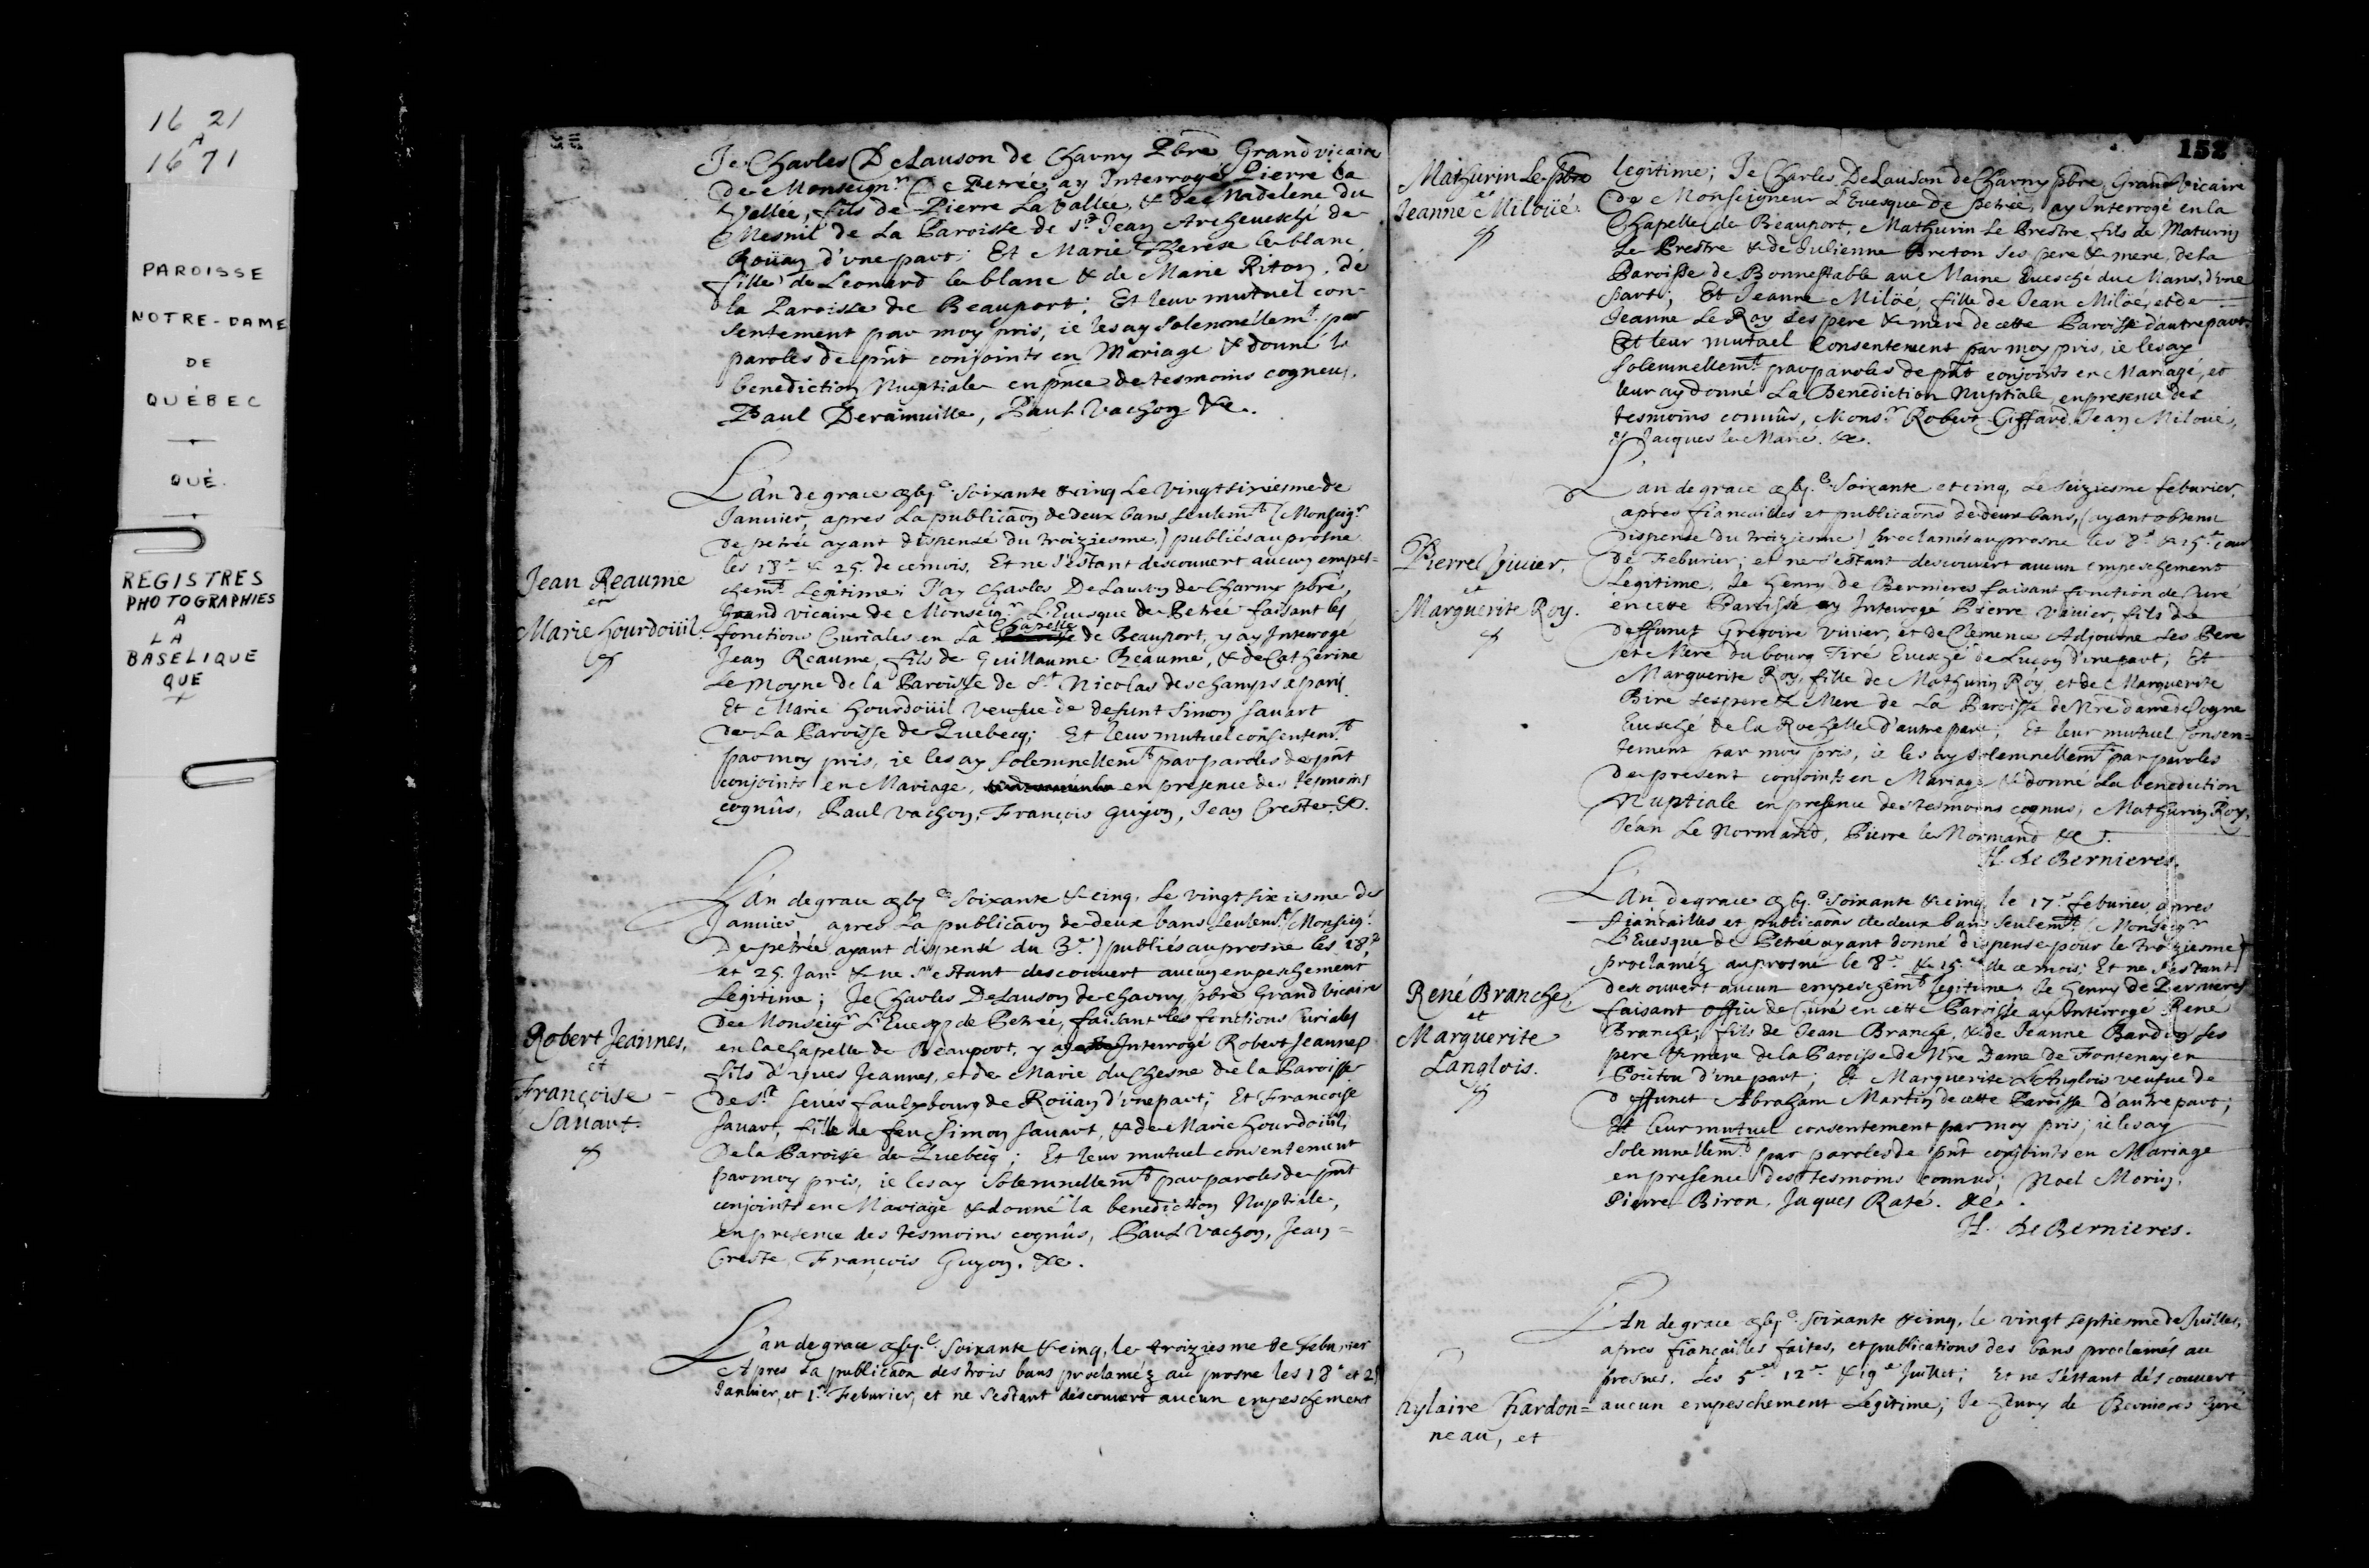 16 21
A
16 71
PAROISSE
NOTRE-DAME
DE
QUÉBEC
QUÉ.
REGISTRES
PHOTOGRAPHIES
A
LA
BASELIQUE
QUE
Je Charles De Lauson de Charny Pbre Grand vicaire
de Monseignr De Petrée ay Interrogé Pierre La
Vallée, fils de Pierre La Vallee, & de Madelene du
Mesnil de La Paroisse de St Jean Archeuesché de
Roüan d'vne part; Et Marie Therese le blanc
fille de Leonard le blanc & de Marie Riton, de
la Paroisse de Beauport; Et leur mutuel con-
sentement par moy pris, ie les ay solemnellemt par
paroles de pnt conjoints en Mariage & donné la
benediction Nuptiale en pnce de tesmoins cogneus,
Paul Derainuille, Paul Vachon &c.
L'an de grace soixante & cinq Le vingt sixiesme de
Januier, apres La publicaon de deux bans seulemt (Monseigr
de petrée ayant dispensé du troiziesme,) publiés au prosne
les 18e & 25. de ce mois, Et ne s'estant descouuert aucun empes=
chemt Legitime; J'ay Charles De Lauson de Charny pbre,
Grand vicaire de Monseigr L'Euesque de Petrée faisant les
fonctions Curiales en La Chapelle de Beauport, y ay Interrogé
Jean Reaume, fils de Guillaume Reaume, & de Catherine
Le Moyne de la Paroisse de St Nicolas des champs a paris
Et Marie hourdoüil veufue de defunt Simon sauart
de La Paroisse de Quebecq; Et leur mutuel consentemt
par moy pris, ie les ay solemnellemt par paroles de pnt
conjoints en Mariage, en presence des tesmoins
cognûs, Paul Vachon, François Guyon, Jean Creste &c.
Jean Reaume
et
Marie hourdoüil.
L'an de grace soixante & cinq, Le vingt sixiesme de
Januier apres La publicaon de deux bans seulemt (Monseigr
De petrée ayant dispensé du 3e) publiés au prosne les 18e
et 25. Janr & ne s'estant descouuert aucun empeschement
Legitime; Je Charles De Lauson de charny pbre Grand Vicaire
De Monseigr L'Euesq de Petrée, faisant les fonctions Curiales
en la chapelle de Beauport, y ay Interrogé Robert Jeannes
fils d'yues Jeannes, et de Marie du Chesne de la Paroisse
de St seuer faulxbourg de Roüan d'vne part; Et Francoise
Sauart, fille de feu Simon sauart, & de Marie hourdoüil,
De la Paroisse de Quebecq; Et leur mutuel consentement
par moy pris, ie les ay solemnellemt par paroles de pnt
conjoints en Mariage & donné la benediction Nuptiale,
en presence des tesmoins cognûs, Paul Vachon, Jean=
Creste, François Guyon. &c.
Robert Jeannes,
et
Françoise
Sauart.
L'an de grace soixante & cinq, le troiziesme de Feburier
Apres La publicaon des trois bans proclaméz au prosne les 18e et 25
Januier, et 1er Feburier, et ne s'estant descouuert aucun empeschement
152
Mathurin Le Pbre
et
Jeanne Miloüé.
legitime; Je Charles De Lauson de Charny pbre, Grand Vicaire
de Monseigneur L'Euesque de Petrée, ay Interrogé en la
Chapelle de Beauport, Mathurin Le Prestre fils de Maturin
Le Prestre & de Julienne Breton ses pere & mere, de la
Paroisse de Bonnestable au Maine Euesché du Mans, d'vne
part; Et Jeanne Miloé, fille de Jean Miloé, et de
Jeanne Le Roy ses pere & mere de cette Paroisse d'autre part.
Et leur mutuel Consentement par moy pris, ie les ay
solemnellemt par paroles de pnt conjoints en Mariage, et
leur ay donné La Benediction Nuptiale, en presence des
tesmoins connûs, Monsr Robert Giffard, Jean Miloué,
et Jacques le Marié. &c.
L'an de grace soixante et cinq, Le seiziesme feburier,
apres fiancailles et publicaons de deux bans, (ayant obtenu
dispense du troiziesme) proclamés au prosne les 8e & 15e iour
de Feburier; et ne s'estant descouuert aucun empeschement
Legitime, Je henry de Bernieres faisant fonction de Curé
en cette Paroisse ay Interrogé Pierre Viuier, fils de
deffunct Gregoire Viuier, et de Clemence Adjourne ses Pere
et Mere du bourg Tiré Euesché de Luçon d'vne part; Et
Marguerite Roy, fille de Mathurin Roy et de Marguerite
Biré ses pere & Mere de La Paroisse de Nre dame de Cogne
Euesché de la Rochelle d'autre part; Et leur mutuel Consen=
tement par moy pris, ie les ay solemnellemt par paroles
de present conjoints en Mariage & donné La benediction
Nuptiale en presence des tesmoins cognus, Mathurin Roy,
Jean Le Normand, Pierre le Normand &c.
H. de Bernieres.
Pierre Viuier,
et
Marguerite Roy.
L'an de grace soixante & cinq, le 17e feburier apres
fiancailles et publicaons de deux bans seulemt (Monseigr
L'Euesque de Petrée ayant donné dispense pour le troiziesme)
proclaméz au prosne le 8e & 15e de ce mois; Et ne s'estant
descouuert aucun empeschemt legitime, Je henry de Bernieres
faisant office de Curé en cette Paroisse ay Interrogé René
Branche, fils de Jean Branche, & de Jeanne Bardin ses
pere & mere de la Paroisse de Nre Dame de Fontenay en
Poitou d'vne part; Et Marguerite L'Anglois veufue de
deffunct Abraham Martin de cette Paroisse d'autre part;
Et leur mutuel consentement par moy pris, ie les ay
solemnellemt par paroles de pnt conjoints en Mariage
en presence des tesmoins connus; Noel Morin,
Pierre Biron, Jaques Raté. &c.
H. de Bernieres.
René Branche,
et
Marguerite
Langlois.
L'An de grace soixante & cinq, le vingt septiesme de Juillet,
apres fiancailles faites, et publications des bans proclamés au
prosnes, Les 5e 12e & 19e Juillet; Et ne s'estant descouuert
aucun empeschement Legitime, Je henry de Bernieres Curé
hylaire Chardon=
neau, et